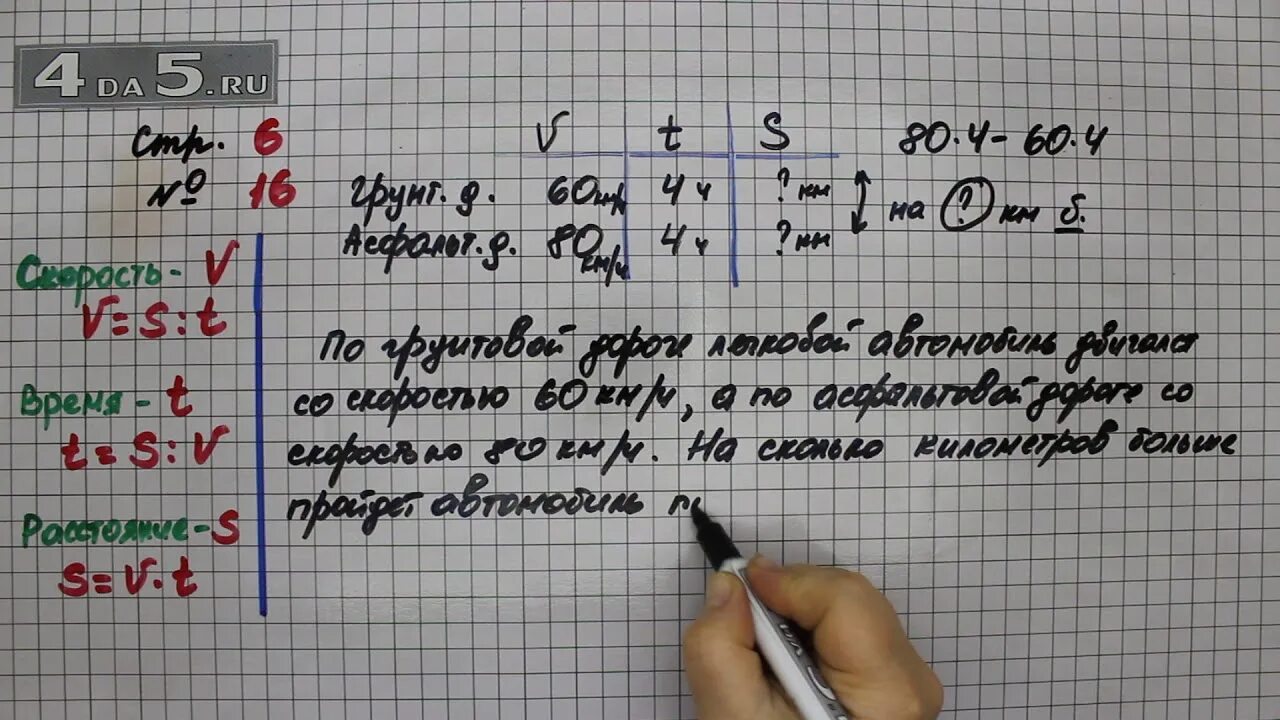 4DA5.RU
Стр. 6
№ 16
V t S
Грунт. д. 60 км/ч 4 ч ? км
Асфальт. д. 80 км/ч 4 ч ? км
80·4 - 60·4
на ? км б.
Скорость - V
V = S : t
Время - t
t = S : V
Расстояние - S
S = V · t
По грунтовой дороге легковой автомобиль двигался
со скоростью 60 км/ч, а по асфальтовой дороге со
скоростью 80 км/ч. На сколько километров больше
пройдет автомобиль п